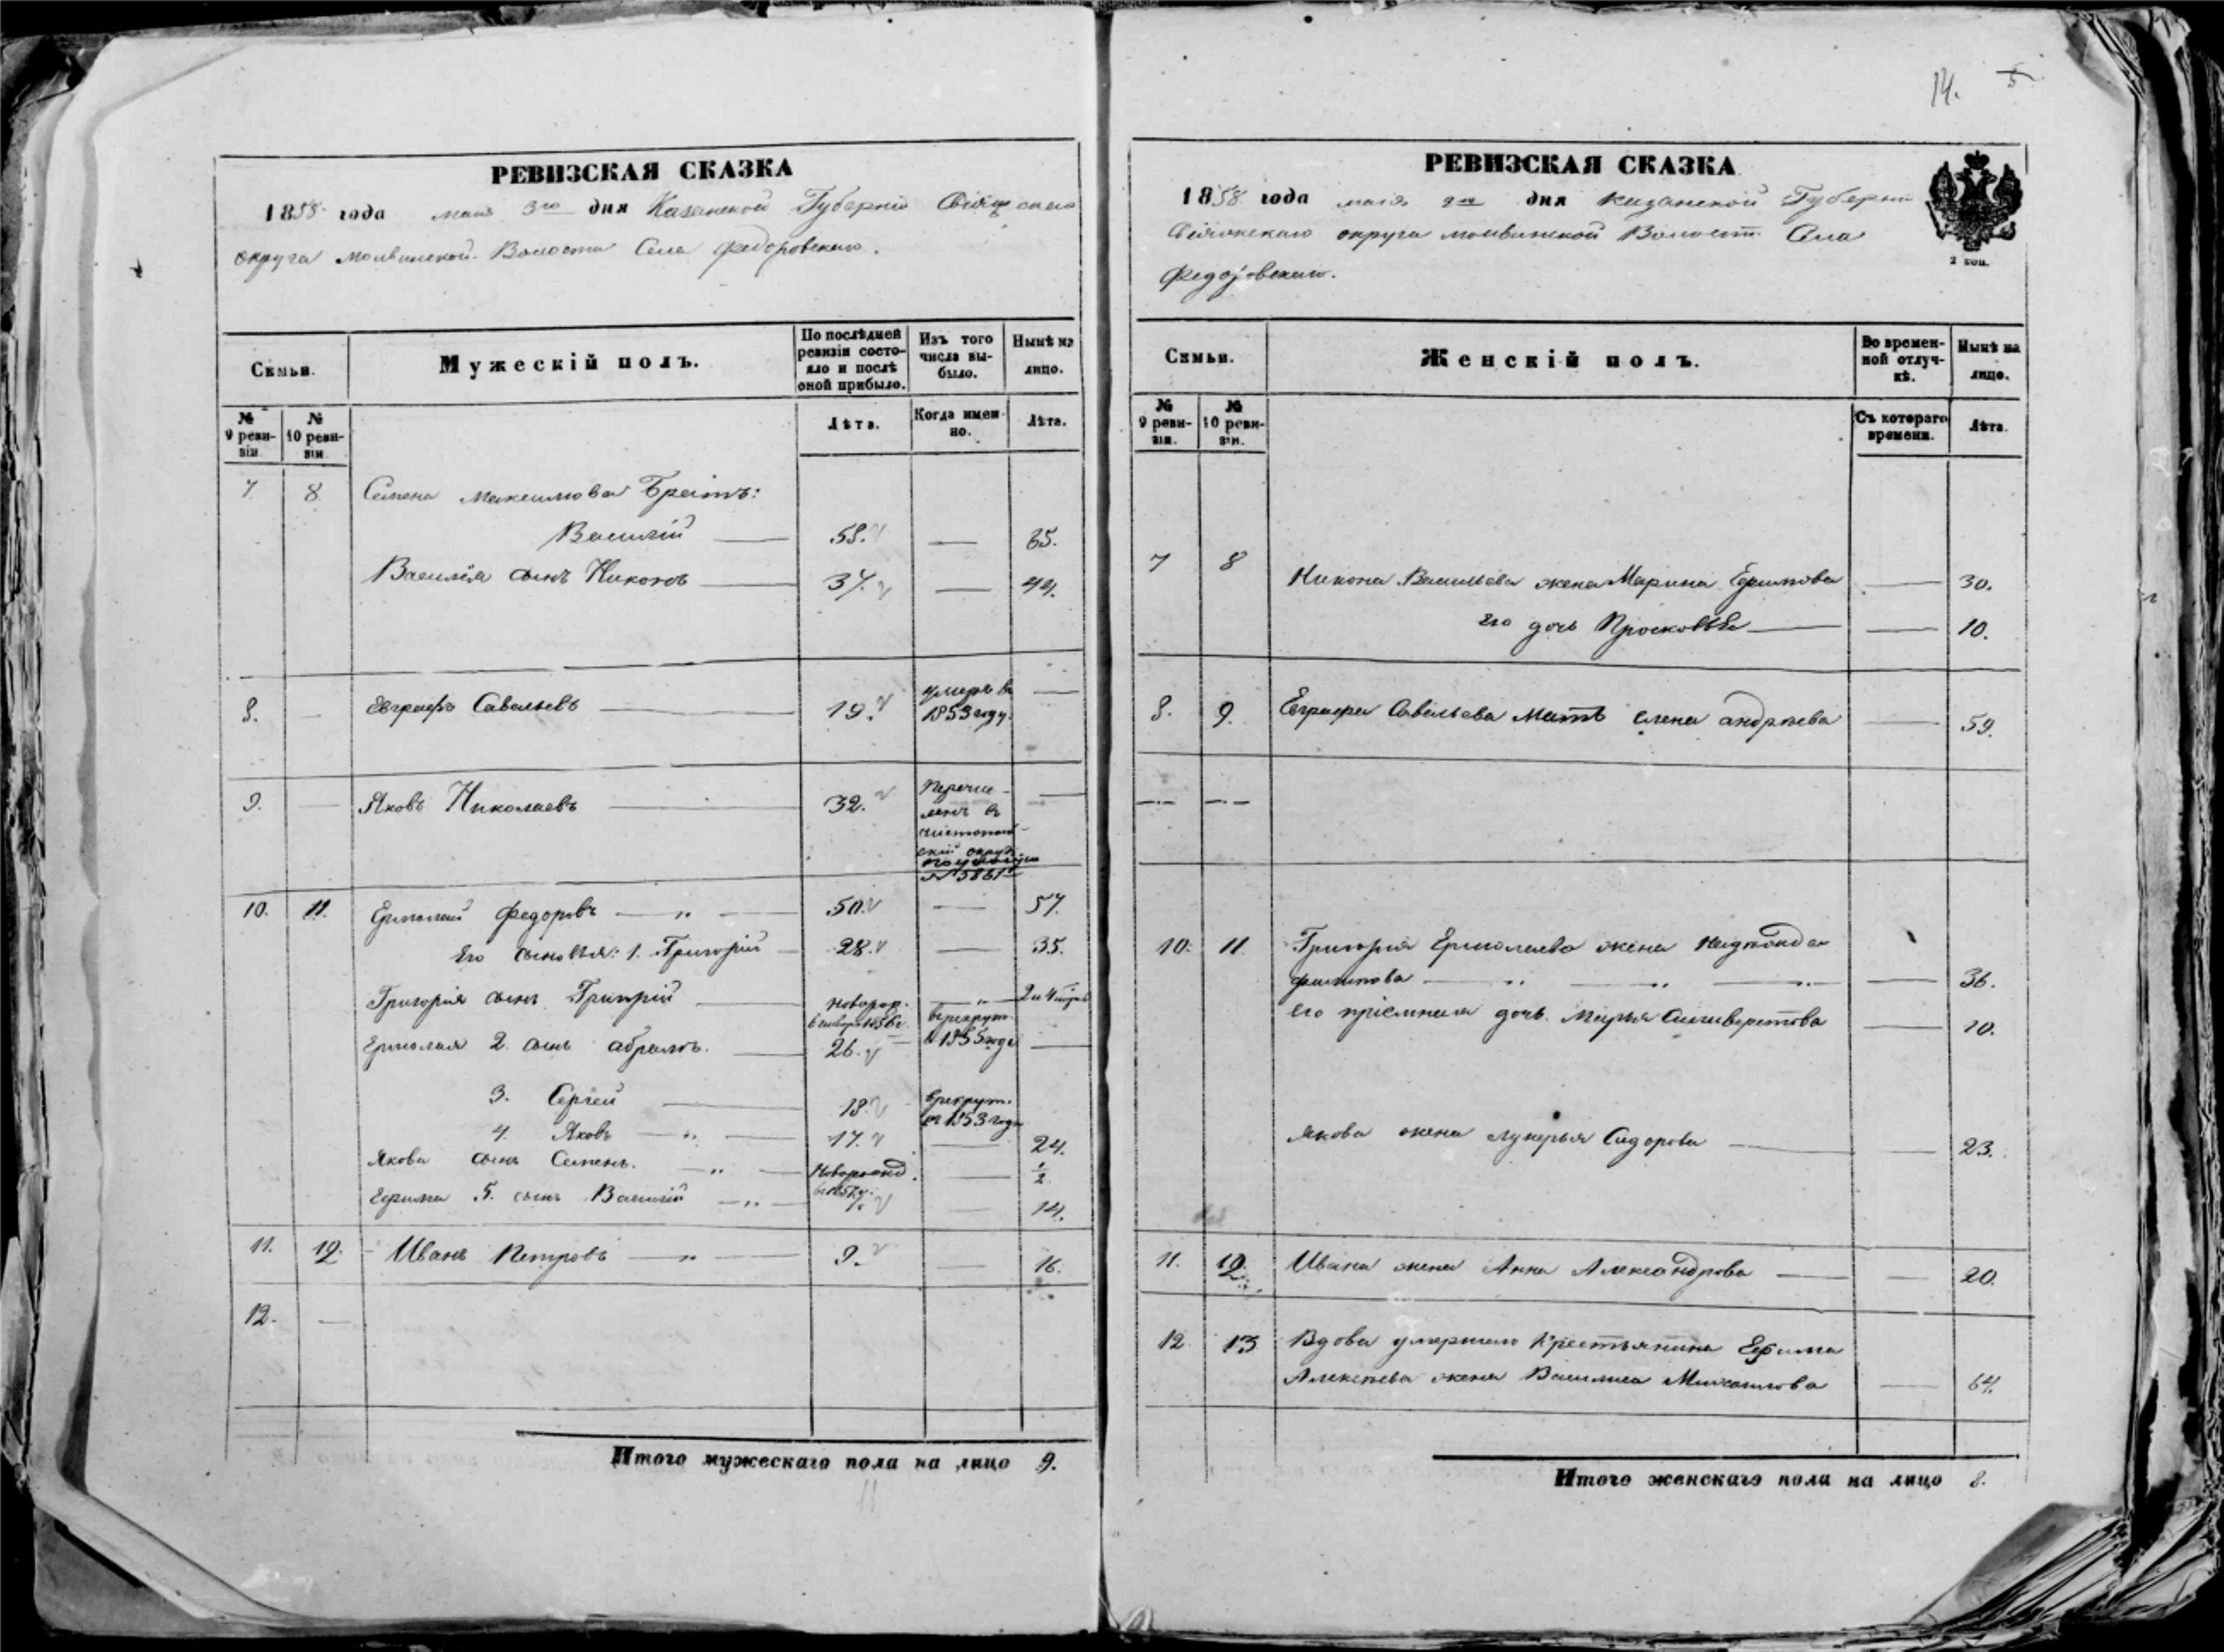 14. 5
РЕВИЗСКАЯ СКАЗКА
1858 года мая 3го дня Казанской Губерніи
округа молвинской Волости Села Федоровскаго.
Семьи.
Мужескій полъ.
По послѣдней ревизіи состояло и послѣ оной прибыло.
Изъ того числа выбыло.
Нынѣ на лицо.
№ 9 ревизіи.
№ 10 ревизіи.
Лѣта.
Когда именно.
Лѣта.
7. 8. Семена Максимова Братъ:
Василій — 58. — 65.
Василія сынъ Никоновъ — 37. — 44.
8. — Евграфъ Савельевъ — 19. умеръ въ 1853 году. —
9. — Яковъ Николаевъ — 32. Перечисленъ в чистопольскій округ по указу № 5861 —
10. 11. Ермолай Федоровъ — " — 50. — 57.
Его сыновья: 1. Григорій — 28. — 35.
Григорія сынъ Григорій — новорож. — " — 2 и 4
Ермолая 2. сынъ абрамъ. — 26. в рекрут. в 1855 годе —
3. Сергей — 18. в рекрут. въ 1853 годе
4. Яковъ — " — 17. — 24.
Якова сынъ Семенъ. — " — Новорожд. — 1/2.
Ефима 5. сынъ Василій — " — 7. — 14.
11. 12. Иванъ Петровъ — " — 9. — 16.
12. —
Итого мужескаго пола на лицо 9.
11
РЕВИЗСКАЯ СКАЗКА
1858 года мая дня Казанской Губерніи
округа молвинской Волости Села
Федоровскаго.
2 коп.
Семьи.
Женскій полъ.
Во временной отлучкѣ.
Нынѣ на лицо.
№ 9 ревизіи.
№ 10 ревизіи.
Съ котораго времени.
Лѣта.
7 8 Никона Васильева жена Марина Ефимова — 30.
Его дочь Просковья — — 10.
8. 9. Евграфа Савельева Мать елена андреева — 59.
10. 11 Григорія Ермолаева жена
филипова — " — " — " — — 36.
его пріемная дочь Марья Силиверстова — 10.
Якова жена лукерья Сидорова — — 23.
11. 12. Ивана жена Анна Александрова — — 20.
12 13 Вдова умершаго Крестьянина Ефима
Алексеева жена Василиса Михайлова — 64.
Итого женскаго пола на лицо 8.